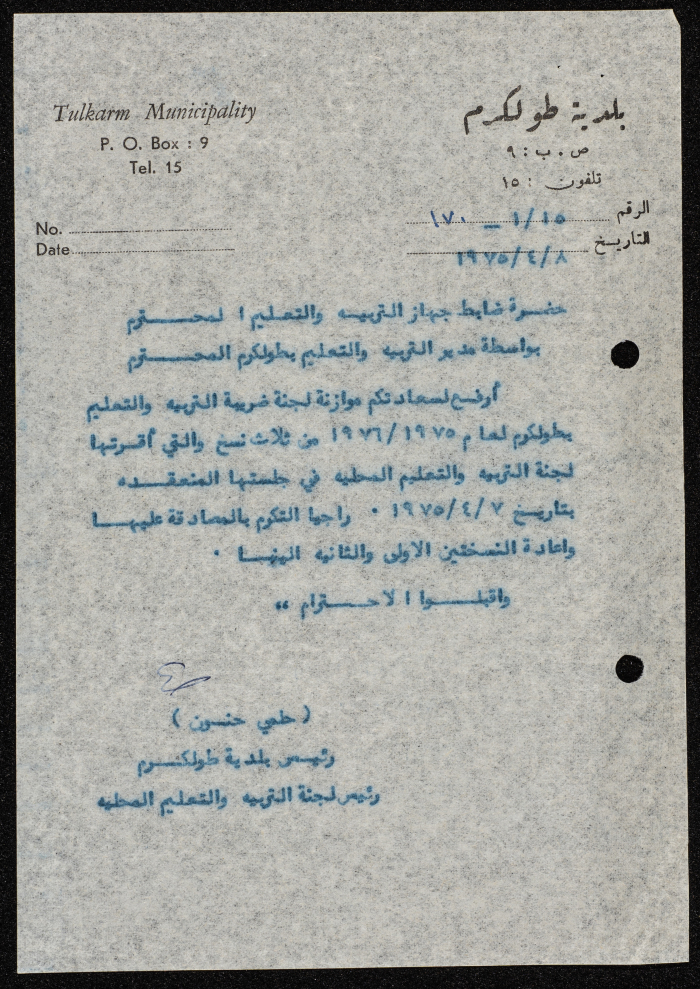 Tulkarm Municipality
P. O. Box : 9
Tel. 15
No.
Date
بلدية طولكرم
ص . ب : ٩
تلفون : ١٥
الرقم ١/١٥ – ١٧٠
التاريخ ١٩٧٥/٤/٨
حضرة ضابط جهاز التربيه والتعليم المحترم
بواسطة مدير التربيه والتعليم بطولكرم المحترم
أرفع لسعادتكم موازنة لجنة ضريبة التربيه والتعليم
بطولكرم لعام ١٩٧٦/١٩٧٥ من ثلاث نسخ والتي أقرتها
لجنة التربيه والتعليم المحليه في جلستها المنعقده
بتاريخ ١٩٧٥/٤/٧ . راجيا التكرم بالمصادقة عليها
واعادة النسختين الاولى والثانيه الينا .
واقبلوا الاحترام ،،
( حلمي حنون )
رئيس بلدية طولكرم
رئيس لجنة التربيه والتعليم المحليه